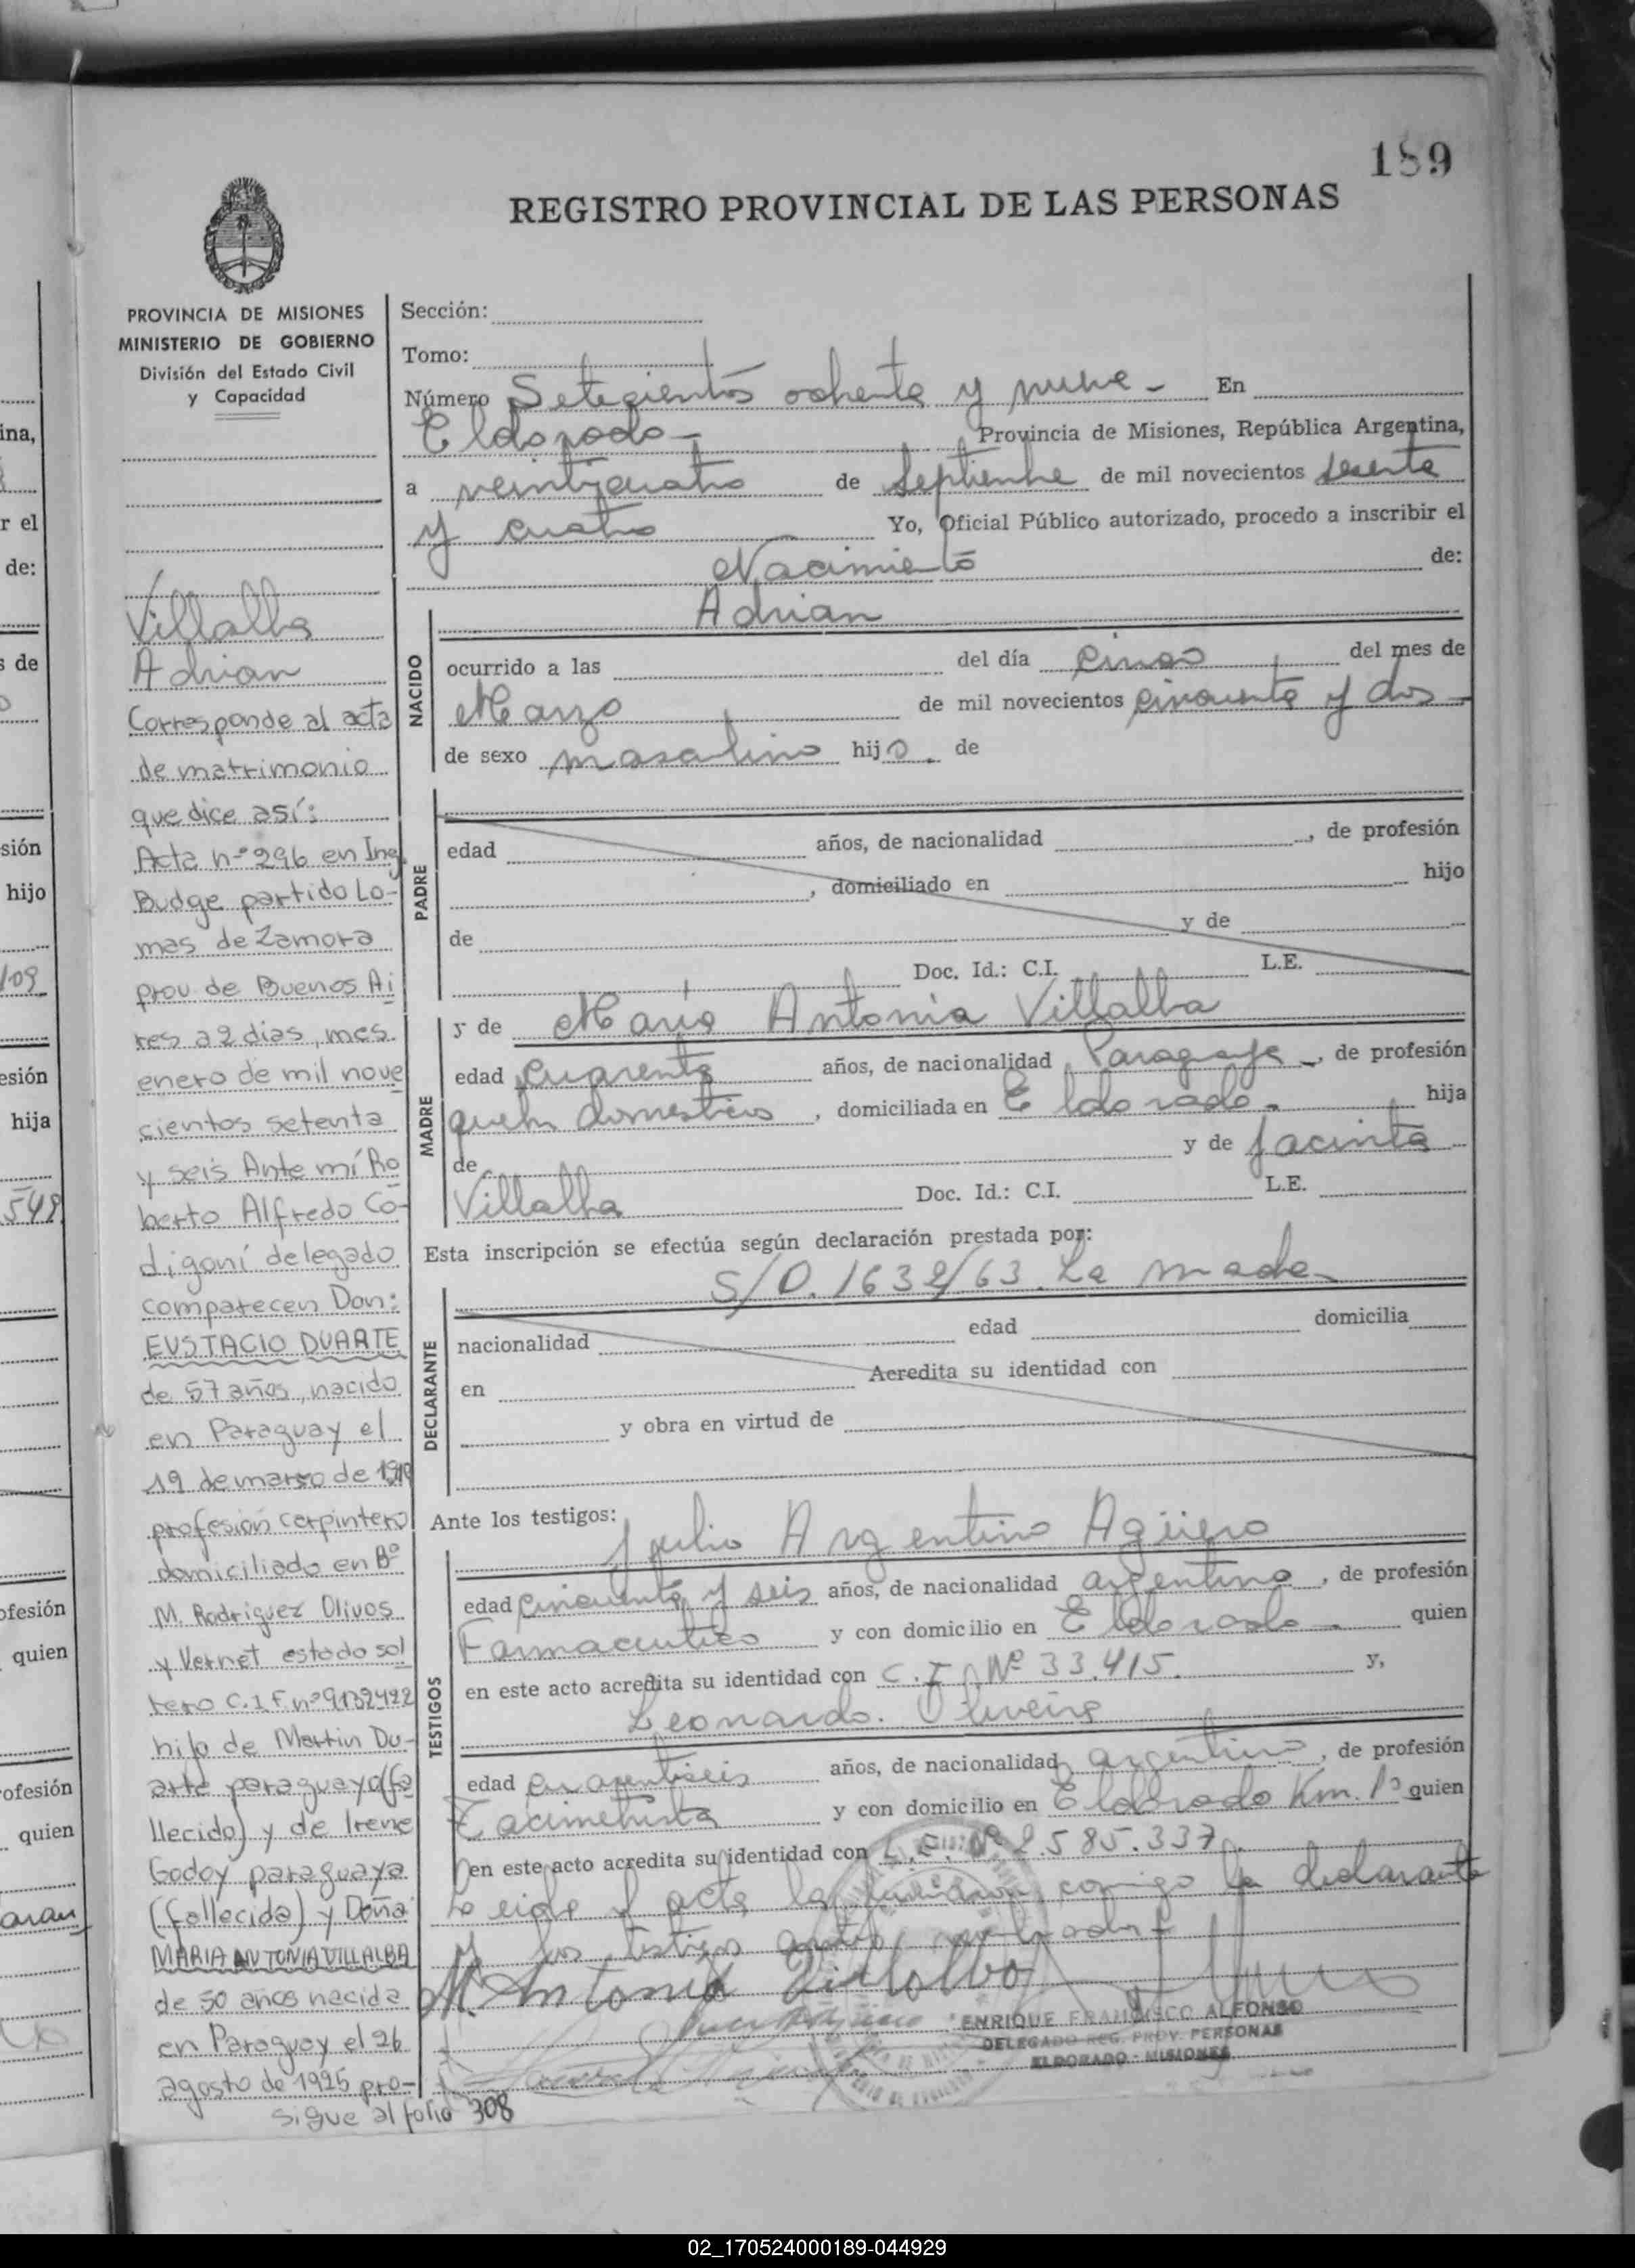 189
REGISTRO PROVINCIAL DE LAS PERSONAS
PROVINCIA DE MISIONES
MINISTERIO DE GOBIERNO
División del Estado Civil
y Capacidad
Villalba
Adrian
Corresponde al acta
de matrimonio
que dice así:
Acta n-º 296 en Ing.
Budge partido Lo-
mas de Zamora
prov de Buenos Ai
res a 2 dias, mes
enero de mil nove
cientos setenta
y seis Ante mí Ro
berto Alfredo Co-
digoní delegado
comparecen Don:
EUSTACIO DUARTE
de 57 años, nacido
en Paraguay el
19 de marzo de
profesión carpintero
domiciliado en Bº
M. Rodriguez Olivos
y Vernet estado sol
tero C.I F. nº 9132422
hijo de Martin Du-
arte paraguayo (fa
llecido) y de Irene
Godoy paraguaya
(fallecida) y Doña
MARIA ANTONIA VILLALBA
de 50 años nacida
en Paraguay el 26
agosto de 1925 pro-
sigue al folio 308
Sección:
Tomo:
Número Setecientos ochenta y nueve - En
Eldorado - Provincia de Misiones, República Argentina,
a veinticuatro de Septiembre de mil novecientos sesenta
y cuatro Yo, Oficial Público autorizado, procedo a inscribir el
Nacimiento de:
Adrian
NACIDO
ocurrido a las del día Cinco del mes de
Marzo de mil novecientos cincuenta y dos -
de sexo masculino hijo. de
PADRE
edad años, de nacionalidad , de profesión
, domiciliado en hijo
de y de
Doc. Id.: C.I. L.E.
MADRE
y de Maria Antonia Villalba
edad cuarenta años, de nacionalidad Paraguaya -, de profesión
queh. domesticos , domiciliada en Eldorado - hija
de y de Jacinta
Villalba Doc. Id.: C.I. L.E.
Esta inscripción se efectúa según declaración prestada por:
S/D. 1632/63. La madre -
DECLARANTE
nacionalidad edad domicilia
en Acredita su identidad con
y obra en virtud de
Ante los testigos:
Julio Argentino Agüero
TESTIGOS
edad cincuenta y seis años, de nacionalidad argentino , de profesión
Farmaceutico y con domicilio en Eldorado - quien
en este acto acredita su identidad con C.I. Nº 33.415. y,
Leonardo. Oliveira
edad cuarentiseis años, de nacionalidad argentino , de profesión
y con domicilio en Eldorado Km. quien
en este acto acredita su identidad con L.E. Nº 2.585.337.
acta la conmigo la declarante
y los testigos
M. Antonia Villalba
ENRIQUE FRANCISCO ALFONSO
DELEGADO REG. PROV. PERSONAS
ELDORADO - MISIONES
ina,
r el
de:
s de
sión
hijo
109
esión
hija
549
ofesión
quien
rofesión
quien
02_170524000189-044929